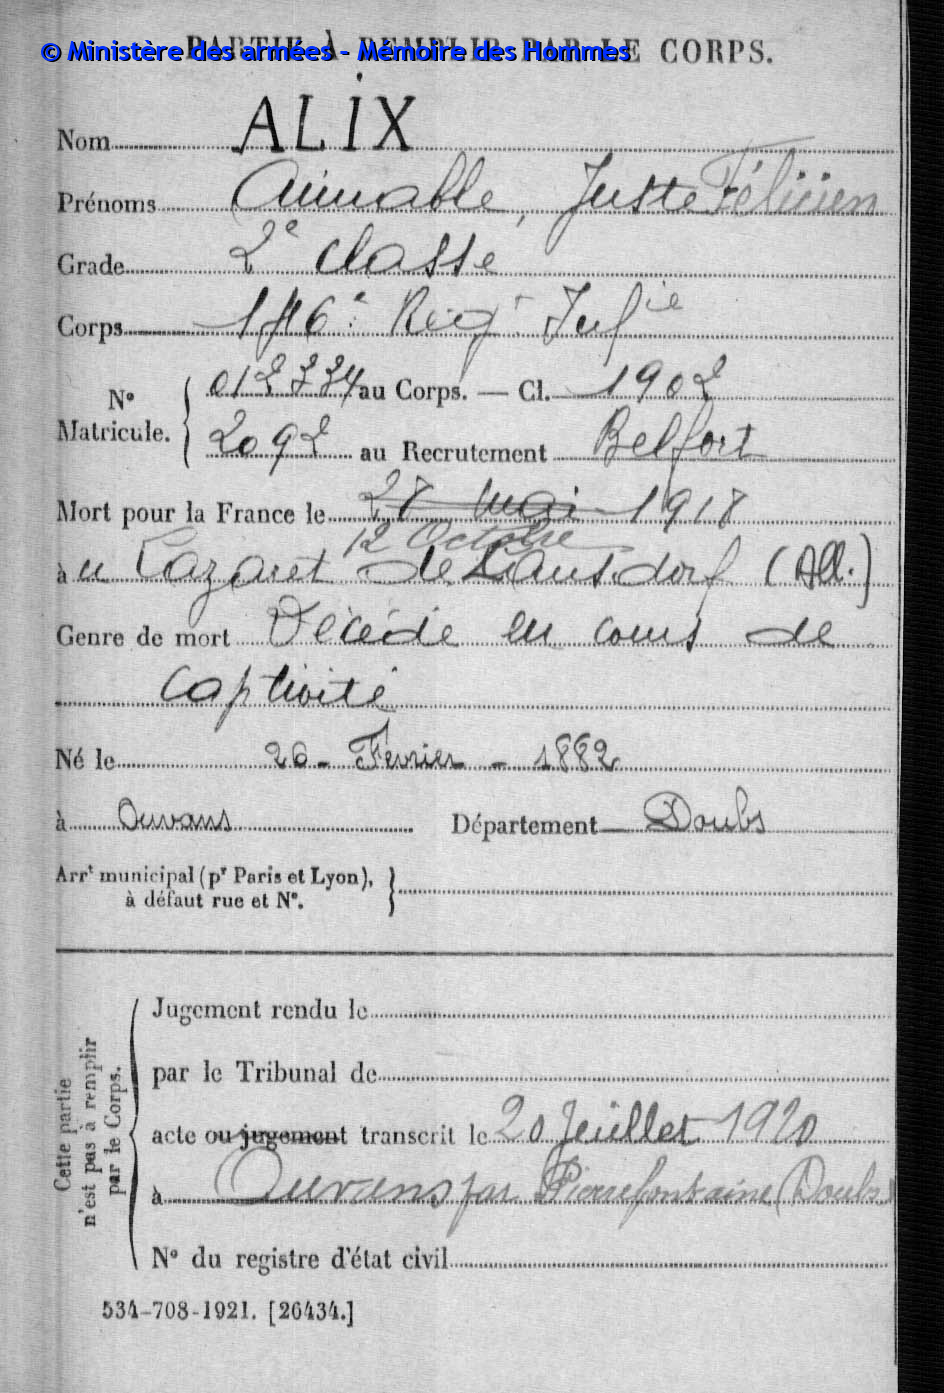 PARTIE À REMPLIR PAR LE CORPS.
© Ministère des armées - Mémoire des Hommes
Nom ALIX
Prénoms Aimable, Juste Félicien
Grade 2e classe
Corps 146e Régt Infie
N° Matricule. 012334 au Corps. — Cl. 1902
2092 au Recrutement Belfort
Mort pour la France le 28 mai 1918
12 Octobre
à u Lazaret de (All.)
Genre de mort Décédé en cours de
captivité
Né le 26 - Février - 1882
à Ouvans Département Doubs
Arrt municipal (pr Paris et Lyon),
à défaut rue et N°.
Cette partie
n'est pas à remplir
par le Corps.
Jugement rendu le
par le Tribunal de
acte ou jugement transcrit le 20 Juillet 1920
à Ouvans par Pierrefontaine (Doubs)
N° du registre d'état civil
534-708-1921. [26434.]